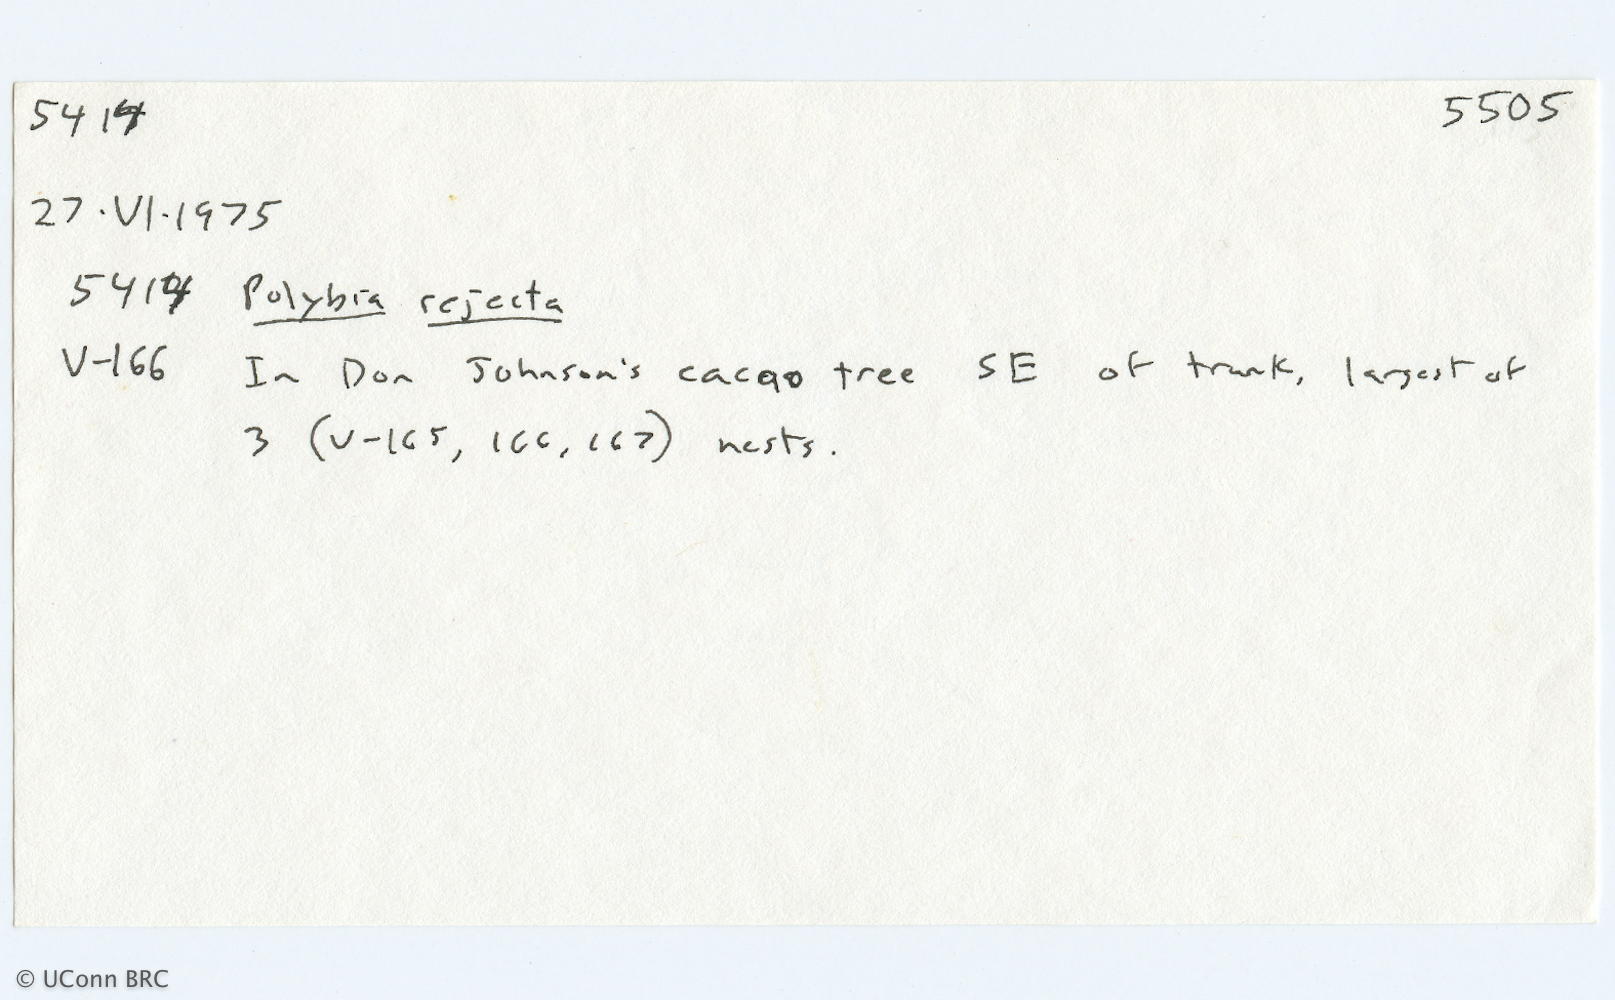 5414 5505
27·VI·1975
5414 Polybia rejecta
V-166 In Don Johnson's cacao tree SE of trunk, largest of
3 (V-165, 166, 167) nests.
© UConn BRC